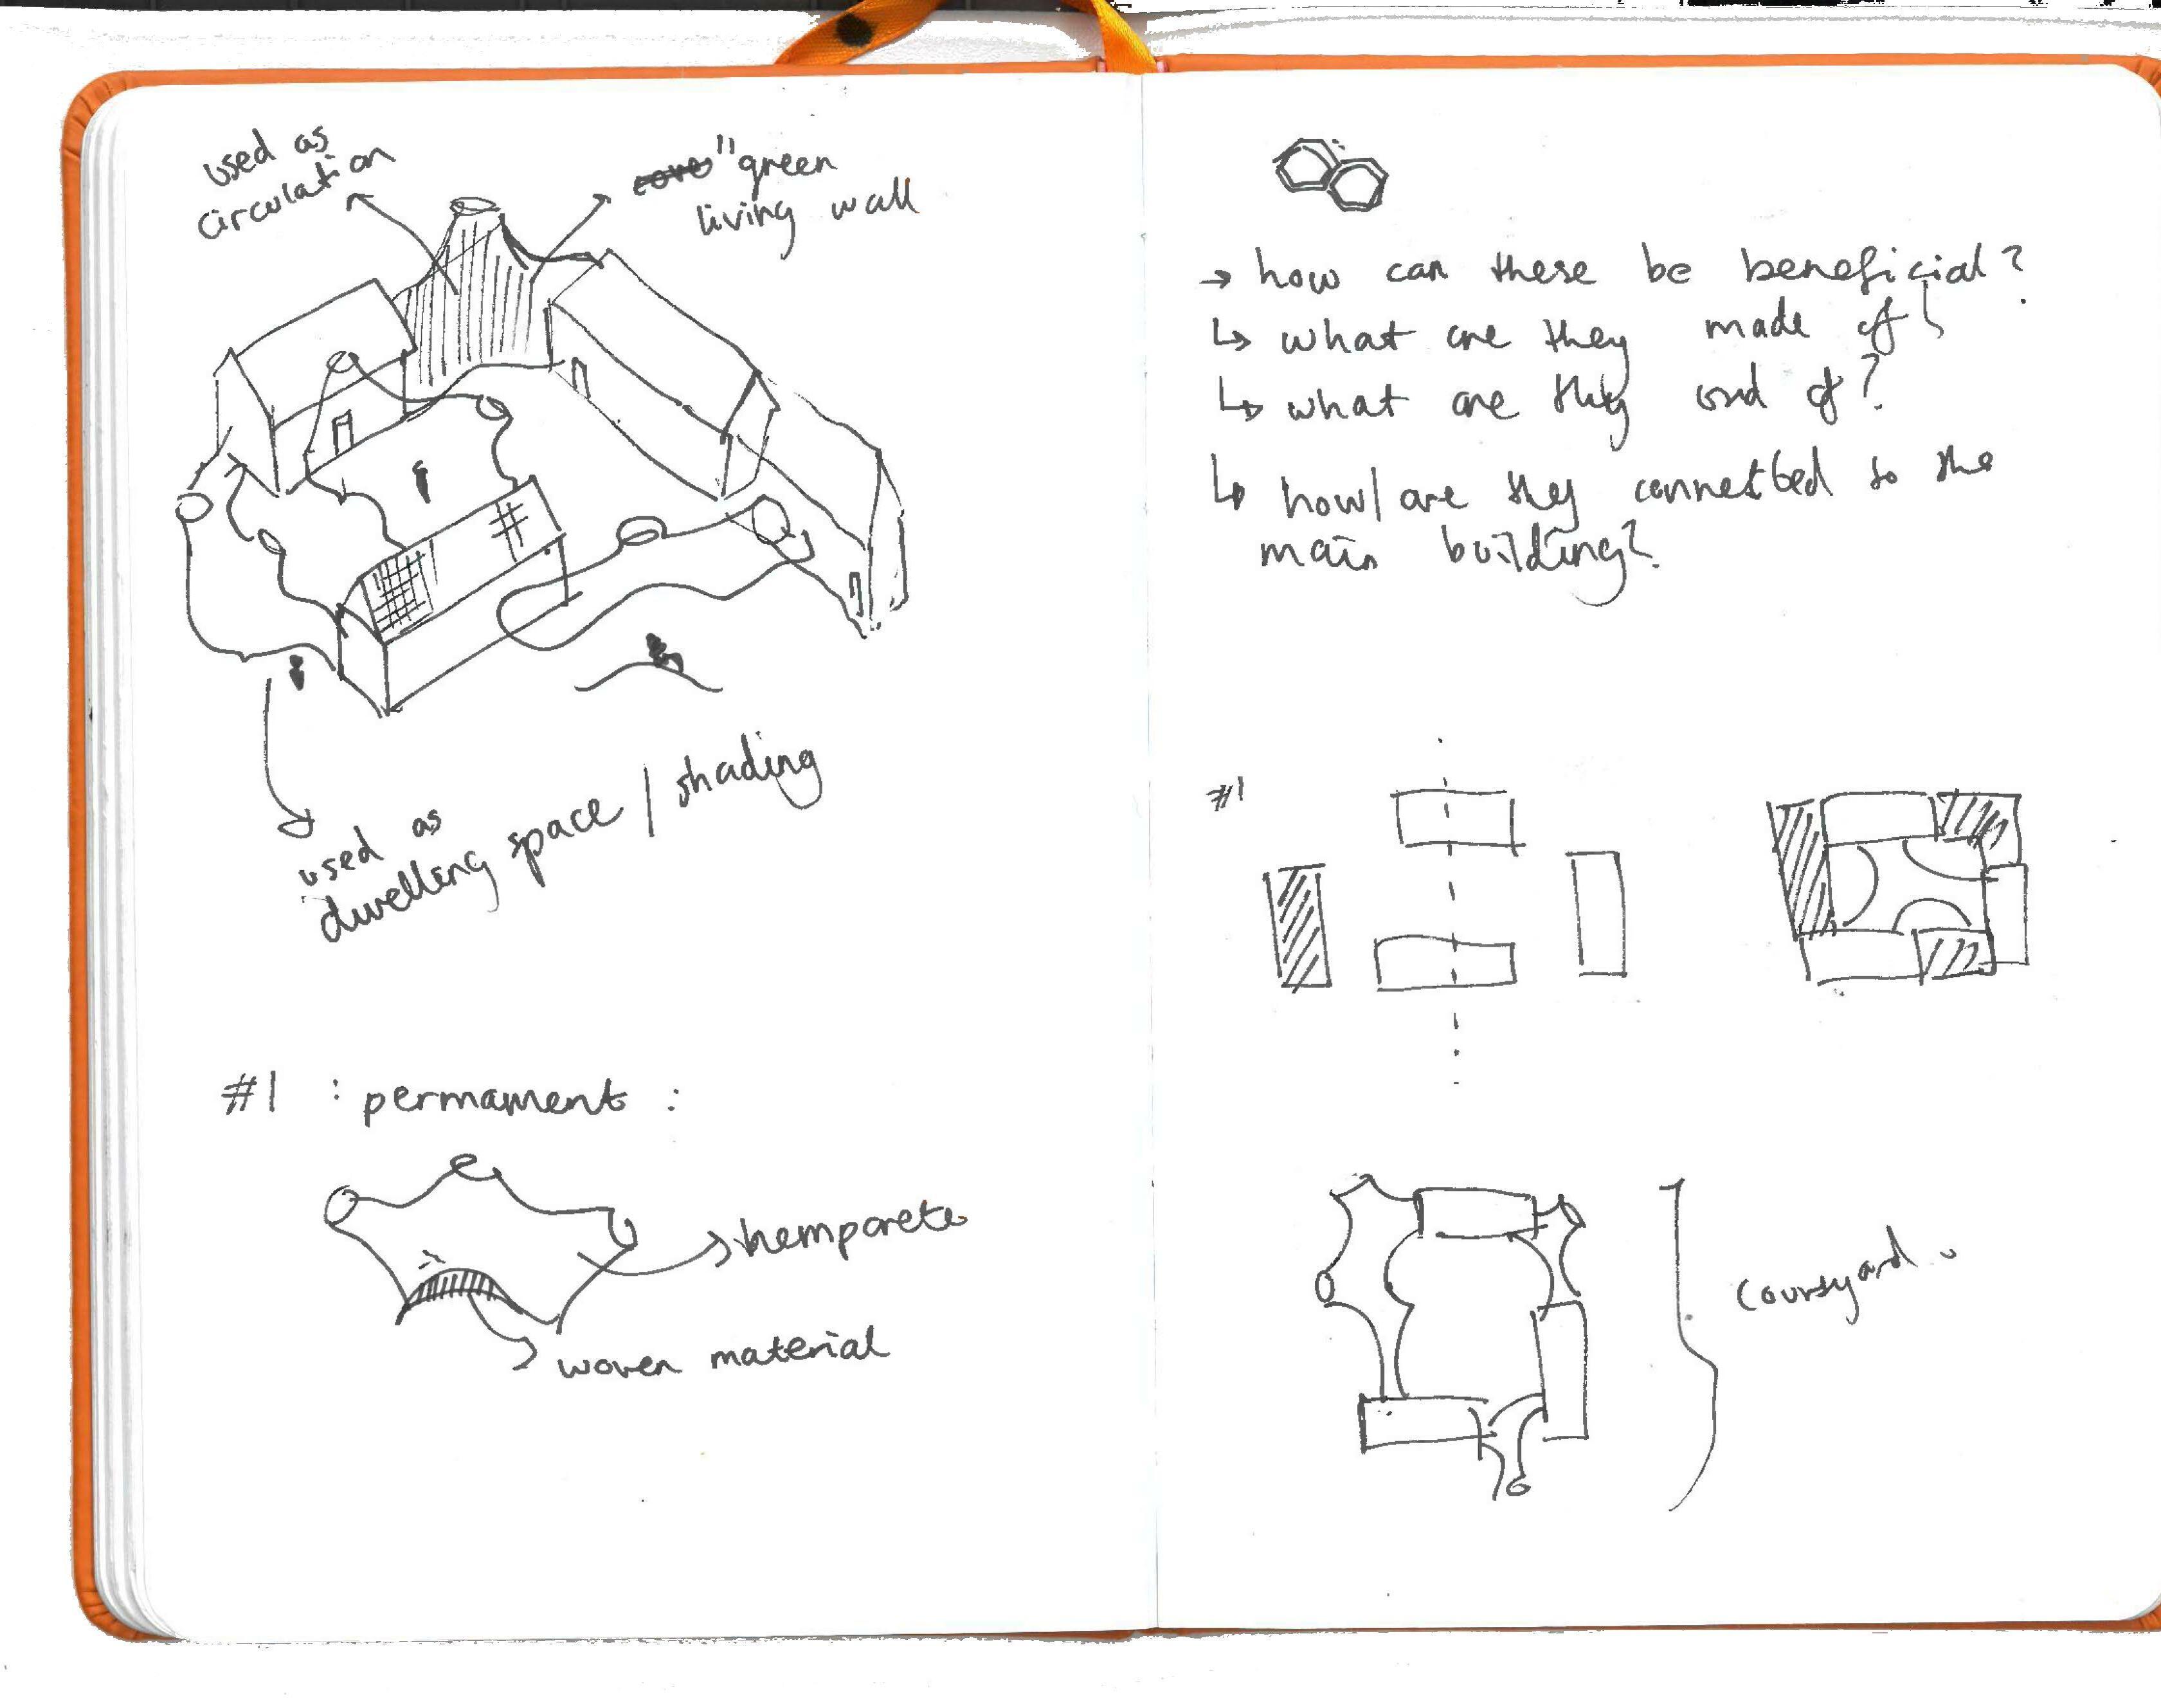 used as
circulation
"green
living wall
used as
dwelling space / shading
#1 : permament :
hempcrete
woven material
→ how can these be beneficial?
↳ what are they made of
↳ what are they of?
↳ how/are they connected to the
main building?
#1
Courtyard